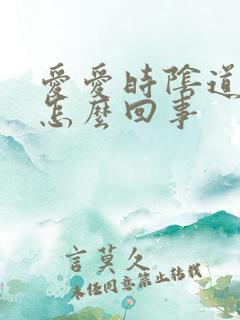 愛愛時陰道
怎麼回事
言莫久
未经同意禁止转载